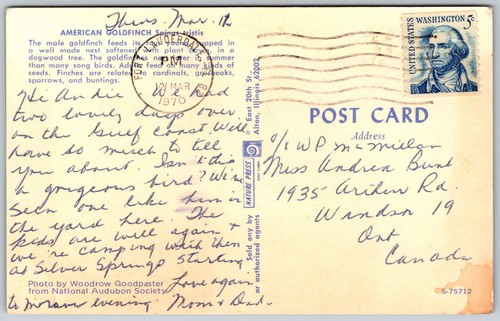 Thurs. Mar. 12
AMERICAN GOLDFINCH Spinus tristis
The male goldfinch feeds its
in a well made nest
dogwood tree. The goldfinches
in summer
than many song birds. Adults feed on many kinds of
seeds. Finches are related to cardinals, grosbeaks,
sparrows, and buntings.
Hi Andie We had
two lovely days over
on the Gulf Coast. Will
have so much to tell
you about. Isn't this
a gorgeous bird? We've
seen one like him in
the yard here. The
kids are well again &
we're camping with them
at Silver Springs starting
to morrow evening.
Love again
Mom & Dad.
Photo by Woodrow Goodpaster
from National Audubon Society
FORT LAUDERDALE
PM
MAR
1970
NATURE PRESS
POST CARDS
East 20th St.
Alton, Illinois 62002
Sold only by agents
or authorized agents
UNITED STATES
WASHINGTON 5c
POST CARD
Address
c/o W P McMillan
Miss Andrea Bunt
1935 Arthur Rd.
Windsor 19
Ont
Canada
S-75712